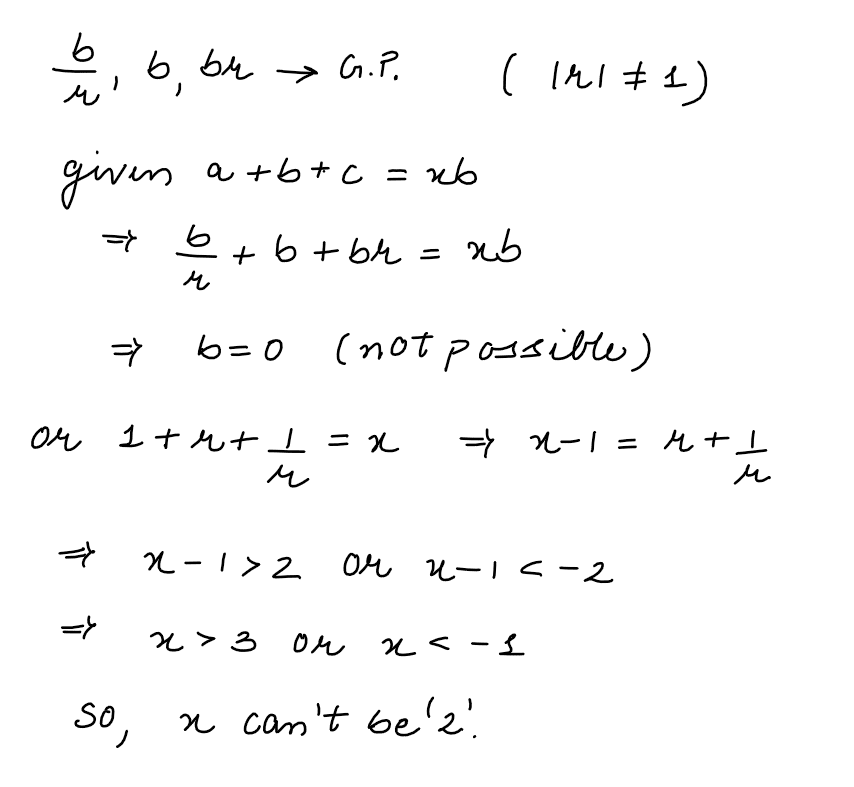 b/r, b, br → G.P. ( |r| ≠ 1)
given a + b + c = xb
⇒ b/r + b + br = xb
⇒ b = 0 (not possible)
or 1 + r + 1/r = x ⇒ x - 1 = r + 1/r
⇒ x - 1 > 2 or x - 1 < -2
⇒ x > 3 or x < -1
So, x can't be '2'.